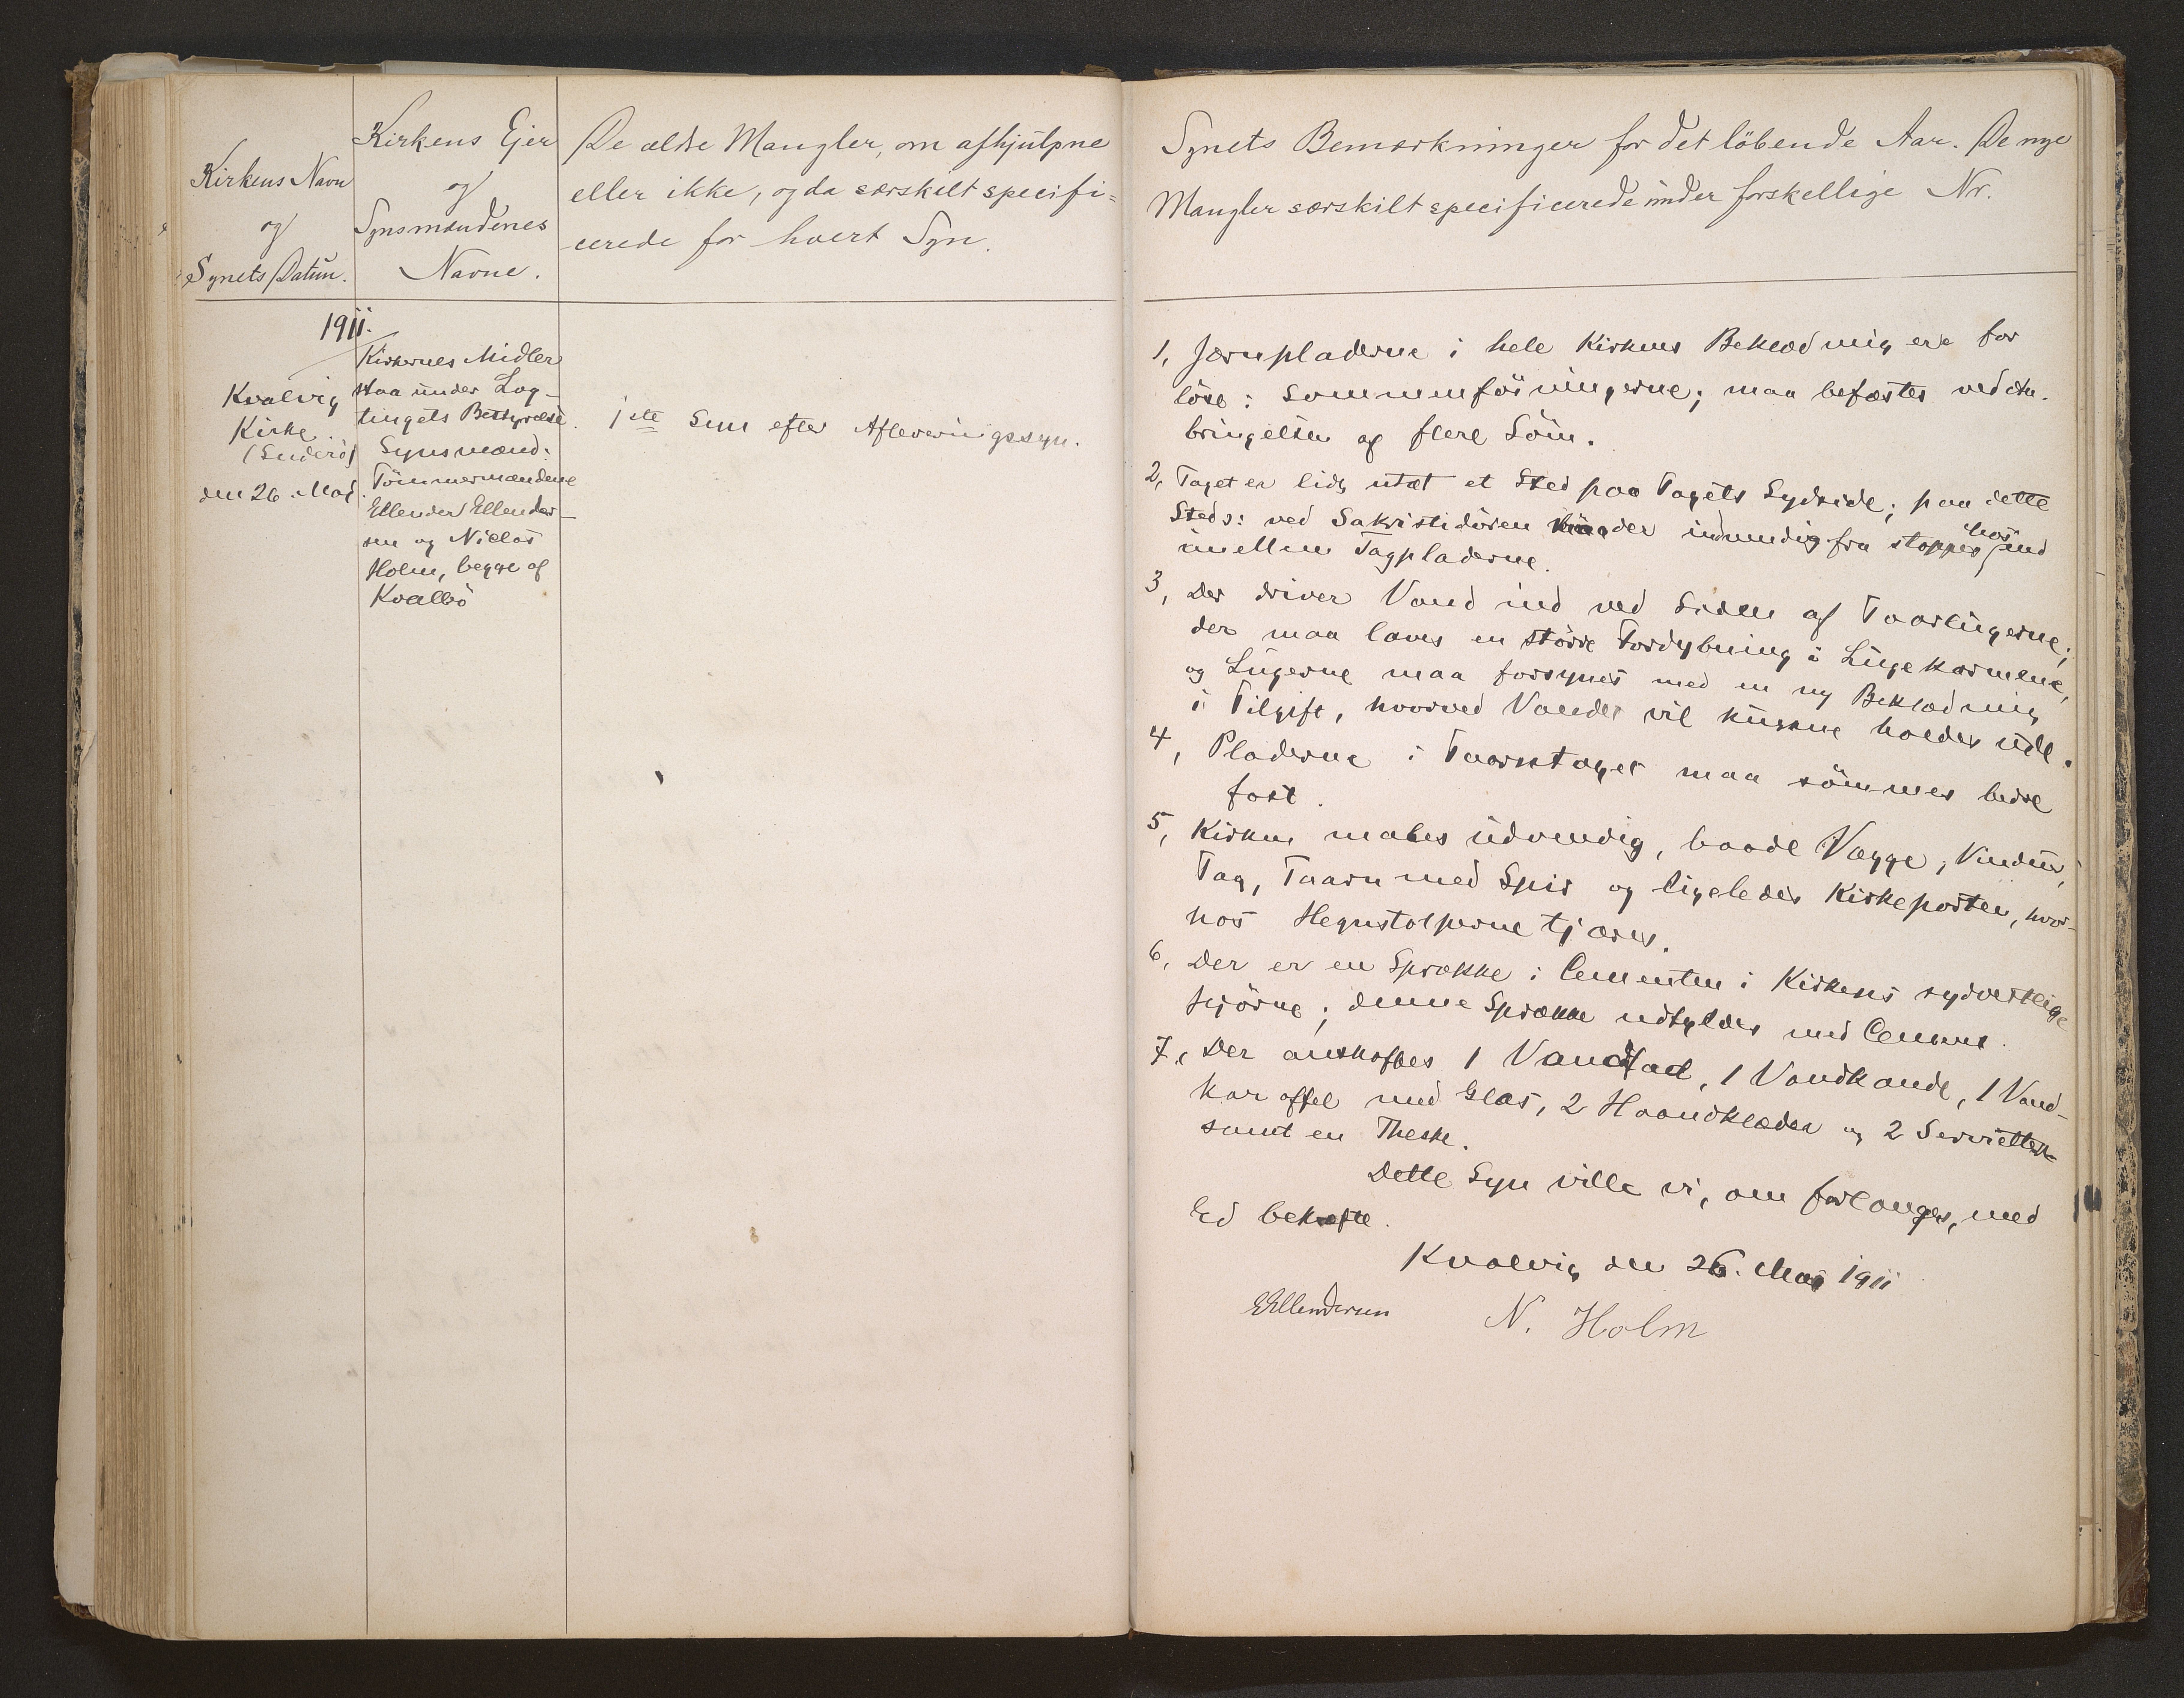 Kirkens Navn
og
Synets Datum.
Kirkens Ejer
og
Synsmændenes
Navne.
De ældre Mangler, om afhjulpne
eller ikke, og da særskilt specifi=
cerede for hvert Syn.
1911.
Kvalvig
Kirke.
(Suderö)
den 26. Mai
Kirkernes Midler
staa under Lag-
tingets Bestyrelse.
Synsmænd:
Tömmermændene
Ellender Ellender-
sen og Niclas
Holm, begge af
Kvalbö
1ste Syn efter Afleveringssyn.
Synets Bemærkninger for det löbende Aar. De nye
Mangler særskilt specificerede under forskellige Nr.
1, Jærnpladerne i hele Kirkens Beklædning ere for
löse i Sammenföiningerne; maa befæstes ved An-
bringelsen af flere Söm.
2, Taget er lidt utæt et Sted paa Tagets Sydside; paa dette
Sted: ved Sakristidören der indvendig fra stoppes hör ind
imellem Tagpladerne.
3, Der driver Vand ind ved Siden af Taarlugerne;
der maa laves en större Fordybning i Lugekarmene,
og Lugerne maa forsynes med en ny Beklædning
i Tilgift, hvorved Vandet vil kunne holdes ude.
4, Pladerne i Taarntaget maa sömmes bedre
fast.
5, Kirken males udvendig, baade Vægge, Vinduer,
Tag, Taarn med Spir og ligeledes Kirkeporten, hvor-
hos Hegnstolperne tjæres.
6, Der er en Sprække i Cementen i Kirkens sydvestlige
Hjörne; denne Sprække udfyldes med Cement.
7, Der anskaffes 1 Vandfad, 1 Vandkande, 1 Vand-
karaffel med Glas, 2 Haandklæder og 2 Servietter
samt en Theske.
Dette Syn ville vi, om forlanges, med
Ed bekræfte.
Kvalvig den 26. Mai 1911
E Ellendersen N. Holm